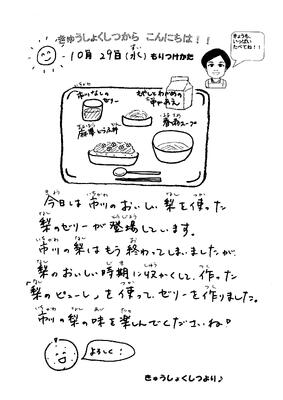 きゅうしょくしつから こんにちは！！
きょうも、
いっぱい
たべてね！！
10月 29日(水) もりつけかた
市川のなしの
ゼリー
もやしとわかめの
中華あえ
麻婆どうふ丼
春雨スープ
今日は 市川の おいしい 梨を 使った
梨のゼリーが 登場しています。
市川の 梨は もう 終わってしまいましたが、
梨の おいしい 時期に 収かくして、作った
「梨のピューレ」を 使って、ゼリーを 作りました。
市川の 梨の 味を 楽しんでくださいね♪
よろしく！
きゅうしょくしつより♪